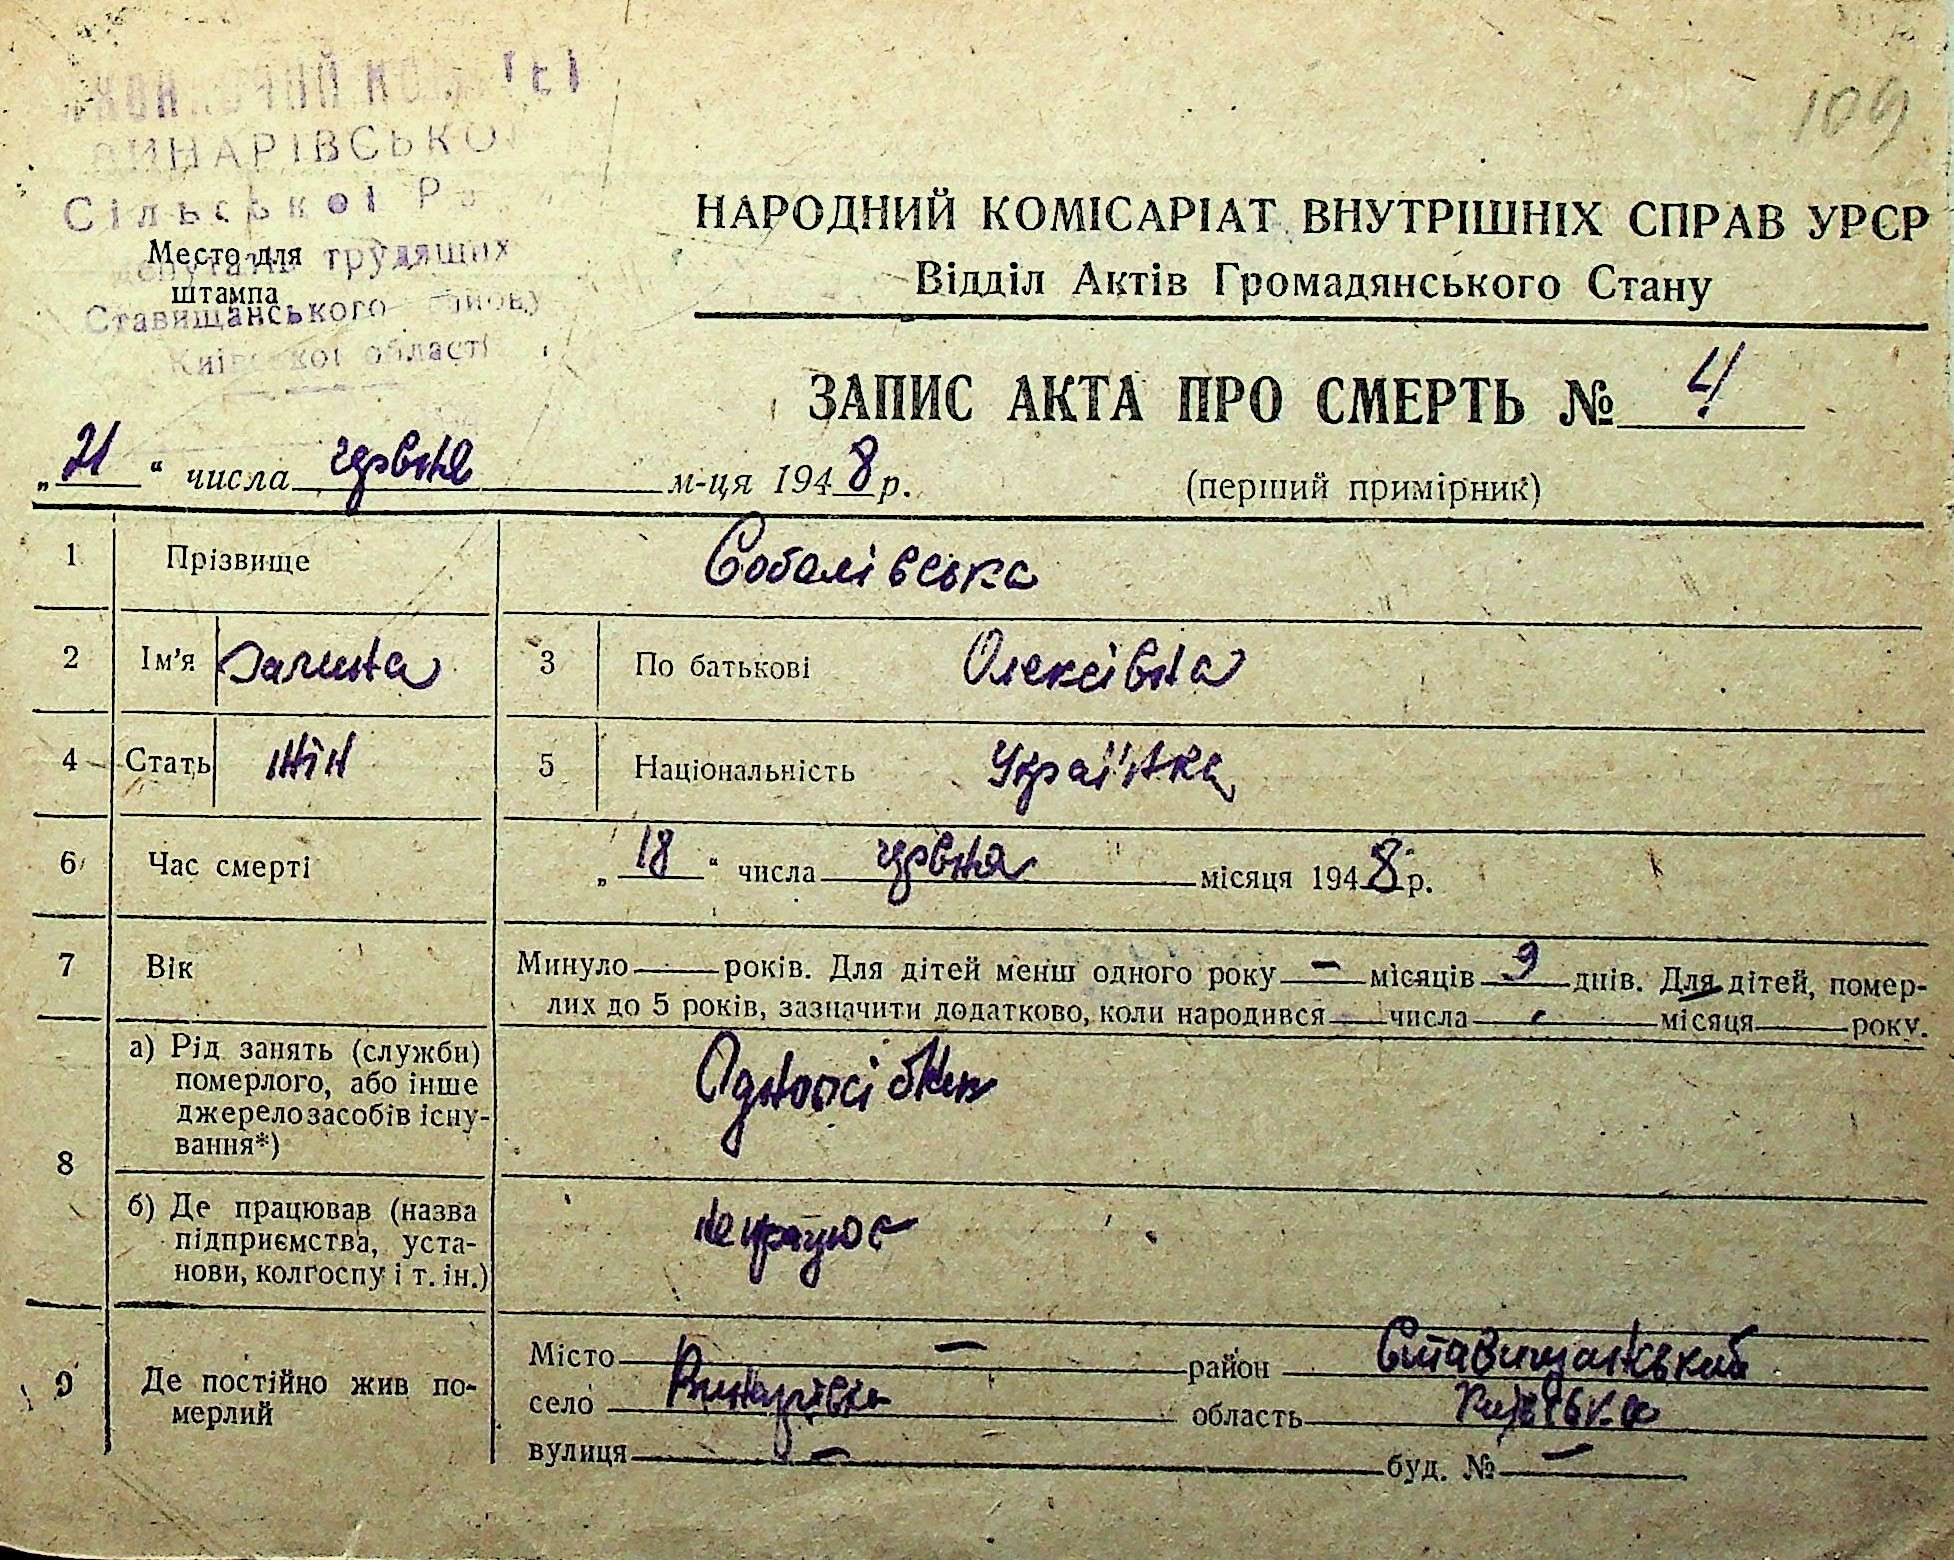 109
ВИНАРІВСЬКОЇ
Сільської
Место для
штампа
трудящих
Ставищанського району
Київської області
НАРОДНИЙ КОМІСАРІАТ ВНУТРІШНІХ СПРАВ УРСР
Відділ Актів Громадянського Стану
ЗАПИС АКТА ПРО СМЕРТЬ № 4
„21“ числа м-ця 1948 р. (перший примірник)
1 Прізвище Соболівська
2 Ім'я Галина 3 По батькові Олексівна
4 Стать жін 5 Національність Украї'нка
6 Час смерті „18“ числа місяця 1948 р.
7 Вік Минуло — років. Для дітей менш одного року — місяців 9 днів. Для дітей, помер-
лих до 5 років, зазначити додатково, коли народився — числа — місяця — року.
8 а) Рід занять (служби)
померлого, або інше
джерело засобів існу-
вання*)
Одноосібник
б) Де працював (назва
підприємства, уста-
нови, колгоспу і т. ін.)
не працює
9 Де постійно жив по-
мерлий
Місто — район Ставищанський
село Винарівка область
вулиця — буд. № —